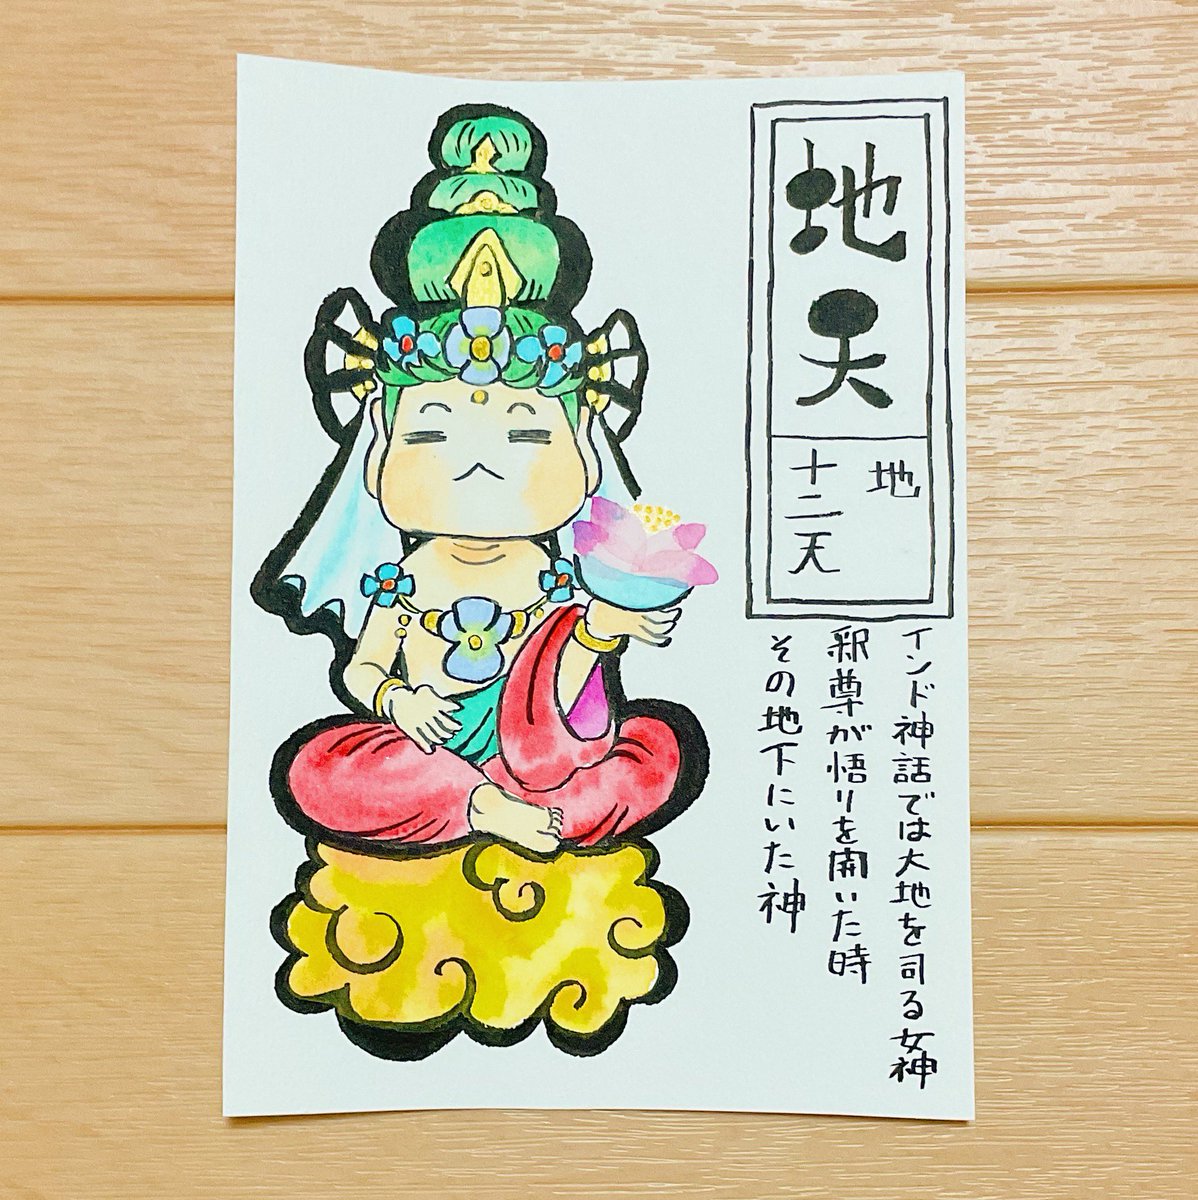 地天
地
十二天
インド神話では大地を司る女神
釈尊が悟りを開いた時
その地下にいた神